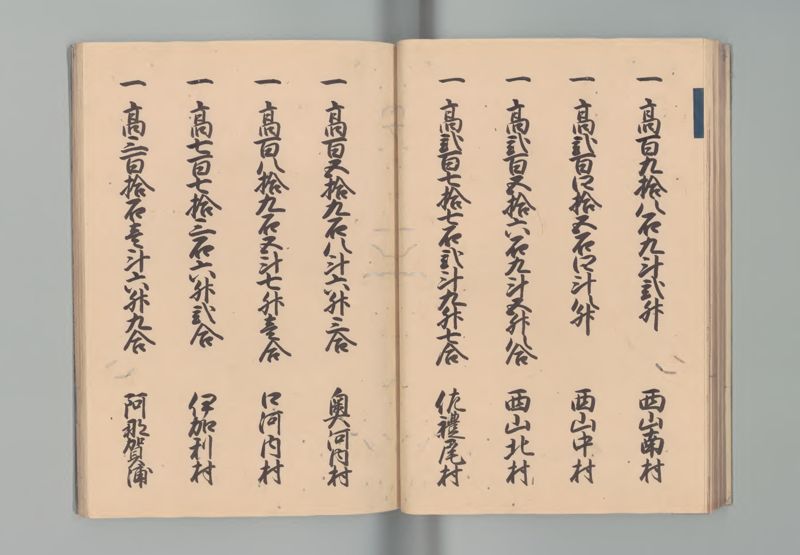 一 高百九拾八石九斗弐升 西山南村
一 高弐百四拾五石四斗八升 西山中村
一 高弐百五拾六石九斗五升八合 西山北村
一 高弐百七拾七石弐斗九升七合 佐禮尾村
一 高百五拾九石八斗六升三合 奥河内村
一 高百八拾九石五斗七升壱合 口河内村
一 高七百七拾三石六升弐合 伊加利村
一 高三百拾石壱斗六升九合 阿那賀浦